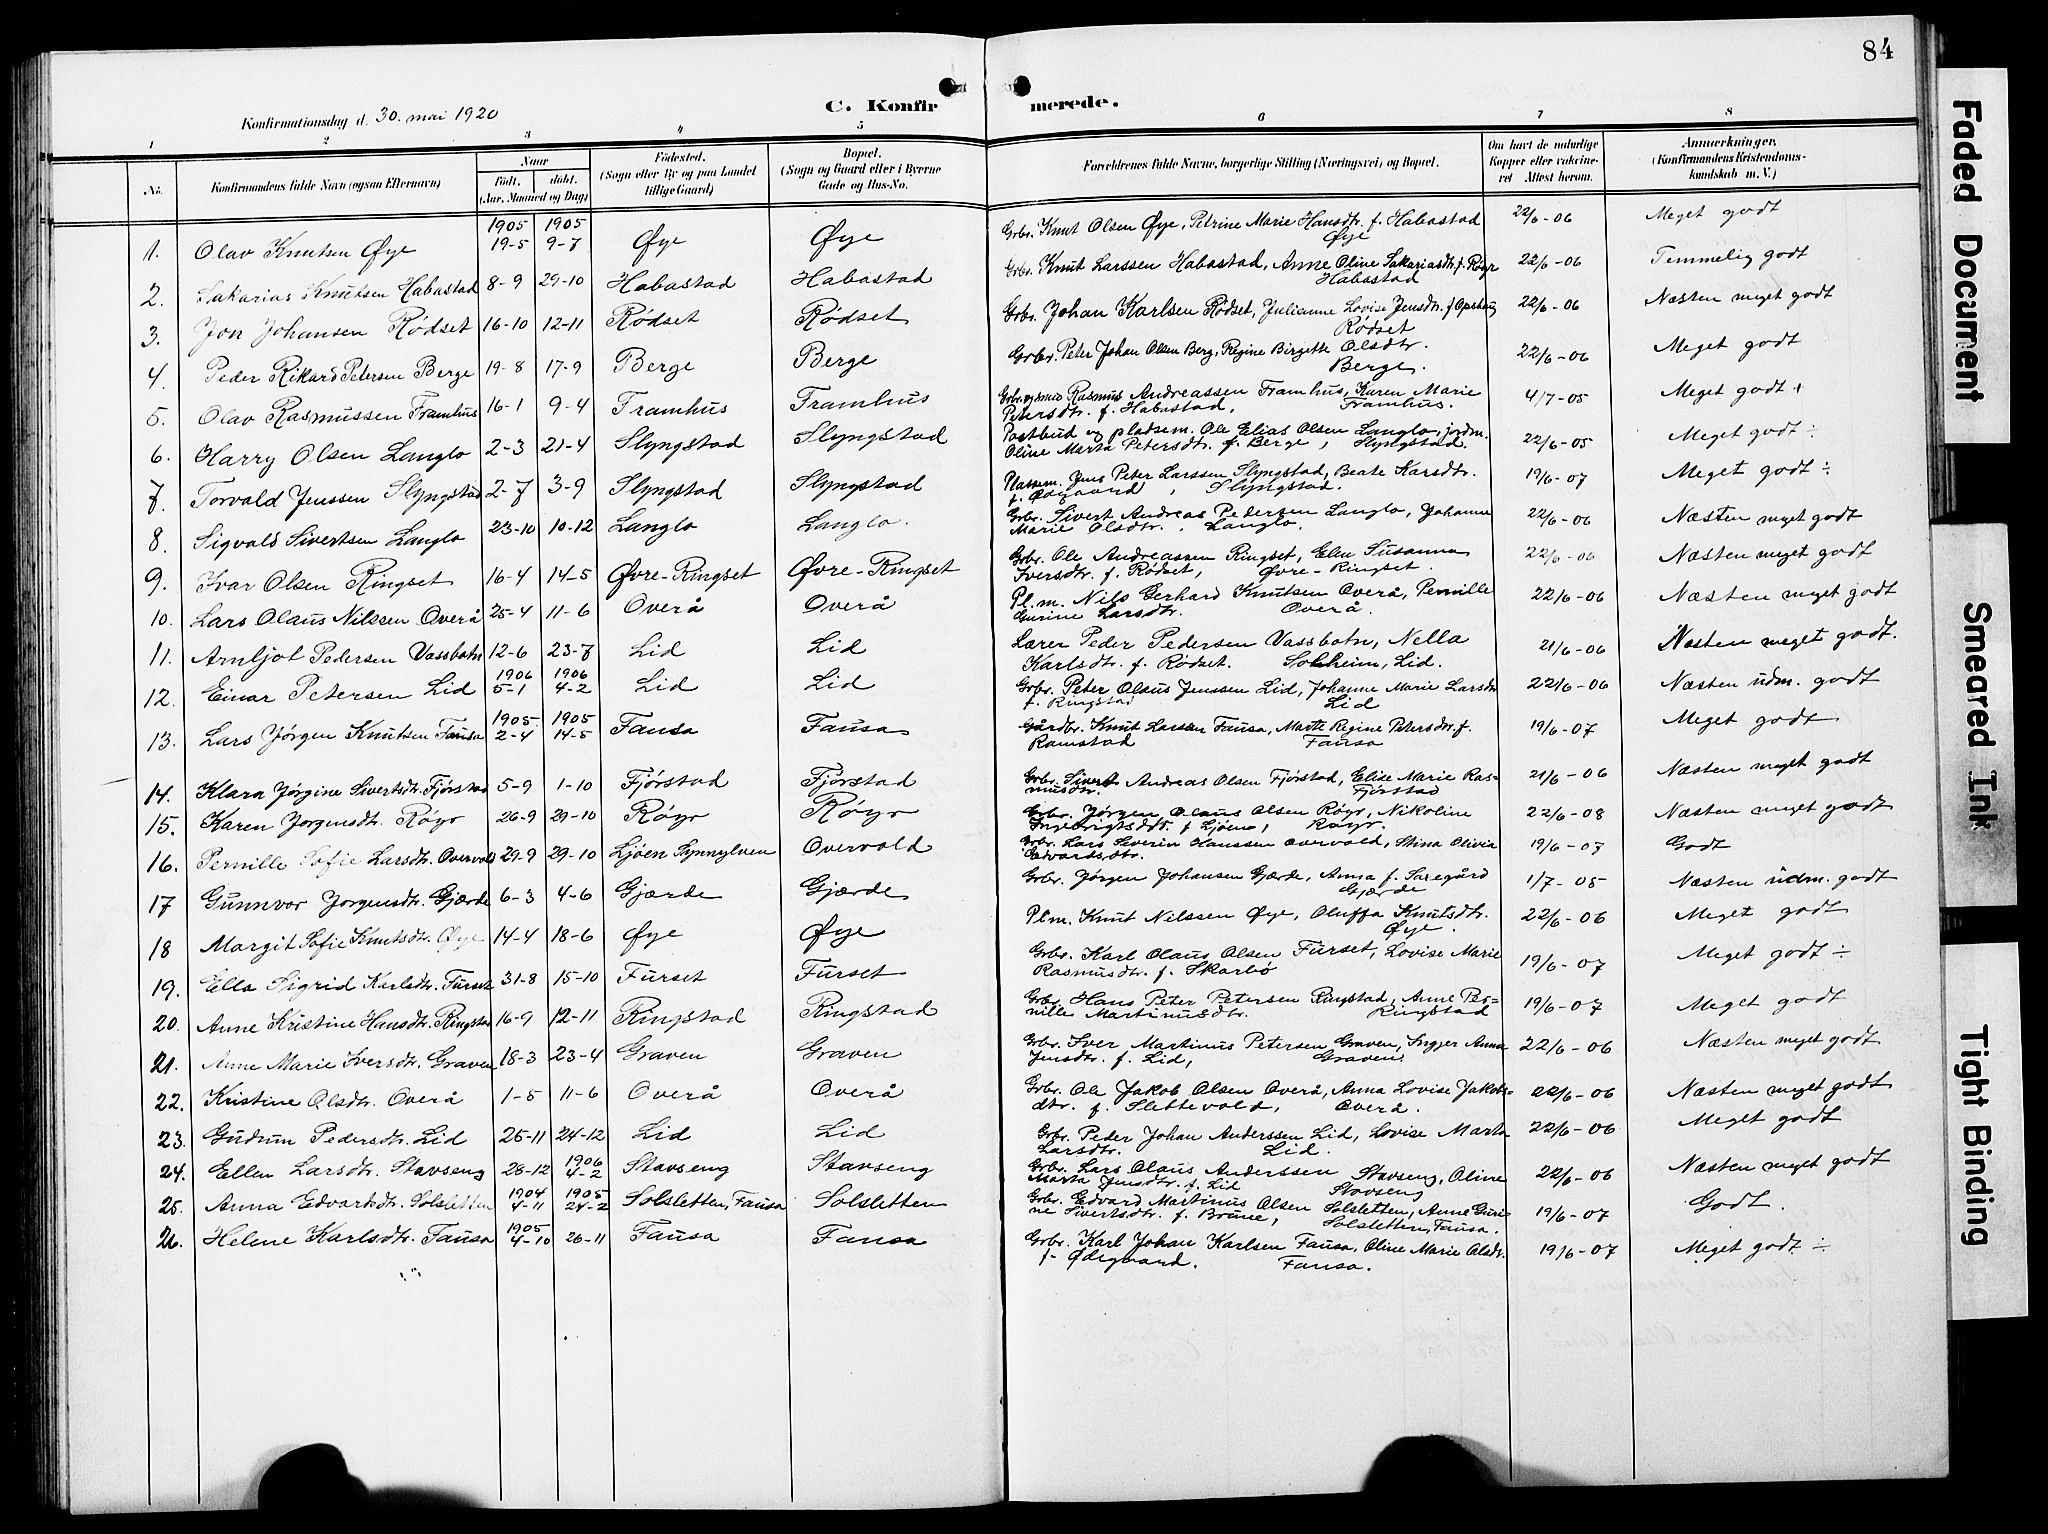 84
Konfirmationsdag d. 30. mai 1920
C. Konfirmerede.
1 2 3 4 5 6 7 8
No. Konfirmandens fulde Navn (ogsaa Efternavn) Naar Født, døbt. (Aar, Maaned og Dag) Fødested. (Sogn eller By og paa Landet tillige Gaard) Bopæl. (Sogn og Gaard eller i Byerne Gade og Hus-No. Forældrenes fulde Navne, borgerlige Stilling (Næringsvei) og Bopæl. Om havt de naturlige Kopper eller vaksineret Attest herom. Anmerkninger, (Konfirmandens Kristendomskundskab m. V.)
1905 1905
1. Olav Knutsen Øye 19-5 9-7 Øye Øye Grbr. Knut Olsen Øye, Petrine Marie Hansdtr. f. Habastad Øye 22/6-06 Meget godt
2. Sakarias Knutsen Habastad 8-9 29-10 Habastad Habastad Grbr. Knut Larssen Habastad, Anne Oline Sakariasdtr. f. Røyr Habastad 22/6-06 Temmelig godt
3. Jon Johansen Rødset 16-10 12-11 Rødset Rødset Grbr. Johan Karlsen Rødset, Julianne Lovise Jensdtr. f. Opshaug Rødset 22/6-06 Næsten meget godt
4. Peder Rikard Petersen Berge 19-8 17-9 Berge Berge Grbr. Peter Johan Olsen Berg, Regine Birgette Olsdtr. Berge. 22/6-06 Meget godt
5. Olav Rasmussen Framhus 16-1 9-4 Framhus Framhus Grbr. og smed Rasmus Andreassen Framhus, Karen Marie Petersdtr. f. Habastad, Framhus. 4/7-05 Meget godt +
6. Harry Olsen Langlo 2-3 21-4 Slyngstad Slyngstad Postbud og pladsem. Ole Elias Olsen Langlo, jordm. Oline Marta Petersdtr. f. Berge, Slyngstad. 22/6-05 Meget godt ÷
7. Torvald Jenssen Slyngstad 2-7 3-9 Slyngstad Slyngstad Plassem. Jens Peter Larssen Slyngstad, Beate Larsdtr. f. Ødegaard, Slyngstad. 19/6-07 Meget godt ÷
8. Sigvald Sivertsen Langlo 23-10 10-12 Langlo Langlo. Grbr. Sivert Andreas Pedersen Langlo, Johanne Marie Olsdtr. Langlo. 22/6-06 Næsten meget godt
9. Ivar Olsen Ringset 16-4 14-5 Øvre-Ringset Øvre-Ringset Grbr. Ole Andreassen Ringset, Elen Susanna Iversdtr. f. Rødset, Øvre-Ringset. 22/6-06 Næsten meget godt
10. Lars Olaus Nilssen Overå 25-4 11-6 Overå Overå Pl.m. Nils Gerhard Knutsen Overå, Pernille Gurine Larsdtr. Overå. 22/6-06 Næsten meget godt
11. Arnljot Pedersen Vassbotn 12-6 23-7 Lid Lid Lærer Peder Pedersen Vassbotn, Nella Karlsdtr. f. Rødset. Solheim, Lid. 21/6-06 Næsten meget godt.
1906 1906
12. Einar Petersen Lid 5-1 4-2 Lid Lid Grbr. Peter Olaus Jenssen Lid, Johanne Marie Larsdtr. f. Ringstad Lid 22/6-06 Næsten udm. godt
1905 1905
13. Lars Jørgen Knutsen Fausa 2-4 14-5 Fausa Fausa Gårdbr. Knut Larssen Fausa, Marte Regine Petersdtr. f. Ramstad Fausa 19/6-07 Meget godt
14. Klara Jørgine Sivertsdtr. Fjørstad 5-9 1-10 Fjørstad Fjørstad Grbr. Sivert Andreas Olsen Fjørstad, Elise Marie Rasmusdtr. Fjørstad 21/6-06 Næsten meget godt
15. Karen Jørgensdtr. Røyr 26-9 29-10 Røyr Røyr Grbr. Jørgen Olaus Olsen Røyr, Nikoline Ingebrigtsdtr. f. Ljøen, Røyr. 22/6-08 Næsten meget godt
16. Pernille Sofie Larsdtr. Overvold 29-9 29-10 Ljøen Synnylven Overvold Grbr. Lars Severin Hanssen Overvold, Stina Olivia Edvardsdtr. 19/6-07 Godt
17 Gunnvor Jørgensdtr. Gjærde 6-3 4-6 Gjærde Gjærde Grbr. Jørgen Johansen Gjærde, Anna f. Saregård Gjærde 1/7-05 Næsten udm. godt
18 Margit Sofie Knutsdtr. Øye 14-4 18-6 Øye Øye Plm. Knut Nilssen Øye, Oluffa Knutsdtr. Øye. 22/6-06 Meget godt
19. Ella Sigrid Karlsdtr. Furset 31-8 15-10 Furset Furset Grbr. Karl Olaus Olsen Furset, Lovise Marie Rasmusdtr. f. Skarbø 19/6-07 Meget godt ÷
20. Anne Kristine Hansdtr. Ringstad 16-9 12-11 Ringstad Ringstad Grbr. Hans Peter Petersen Ringstad, Anne Pernille Martinusdtr. Ringstad 19/6-07 Meget godt
21. Anne Marie Iversdtr. Graven 18-3 23-4 Graven Graven Grbr. Iver Martinus Petersen Graven, Inger Anna Jensdtr. f. Lid, Graven. 22/6-06 Næsten meget godt
22. Kristine Olsdtr. Overå 1-5 11-6 Overå Overå Grbr. Ole Jakob Olsen Overå, Anna Lovise Jakobsdtr. f. Slettevold, Overå. 22/6-06 Næsten meget godt
23. Gudrun Pedersdtr. Lid 25-11 24-12 Lid Lid Grbr. Peder Johan Anderssen Lid, Lovise Marta Larsdtr. Lid. 22/6-06 Meget godt
1906
24. Ellen Larsdtr. Stavseng 28-12 4-2 Stavseng Stavseng Grbr. Lars Olaus Anderssen Stavseng, Oline Marta Jensdtr. f. Lid Stavseng 22/6-06 Næsten meget godt
1904 1905
25. Anna Edvardsdtr. Solsletten 4-11 24-2 Solsletten, Fausa Solsletten Grbr. Edvard Martinus Olsen Solsletten, Anne Gurine Sivertsdtr. f. Brune, Solsletten, Fausa. 19/6-07 Godt.
1905
26. Helene Karlsdtr. Fausa 4-10 26-11 Fausa Fausa Grbr. Karl Johan Karlsen Fausa, Oline Marie Olsdtr. f. Ødegaard. Fausa. 19/6-07 Meget godt ÷
Faded Document
Smeared Ink
Tight Binding